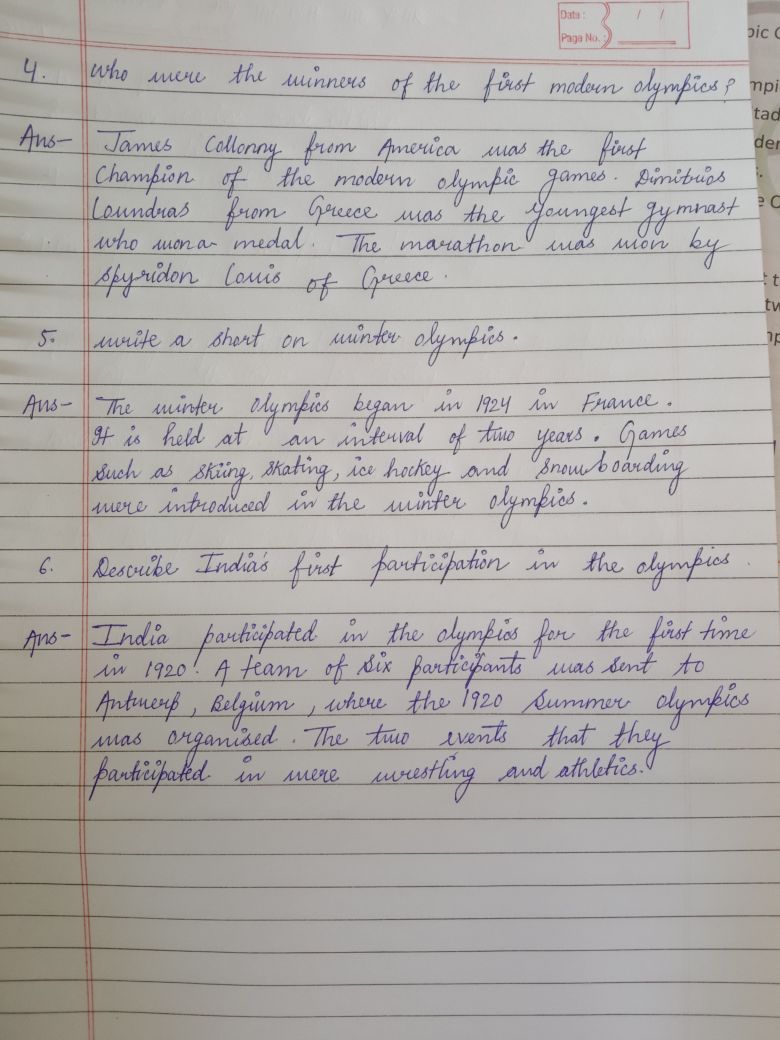 Date : / /
Page No. :
4. Who were the winners of the first modern olympics?
Ans- James Collonny from America was the first
Champion of the modern olympic games. Dimitrios
Loundras from Greece was the Youngest gymnast
who won a medal. The marathon was won by
Spyridon Louis of Greece.
5. write a short on winter olympics.
Ans- The winter Olympics began in 1924 in France.
It is held at an interval of two years. Games
Such as skiing, skating, ice hockey and snowboarding
were introduced in the winter olympics.
6. Describe India's first participation in the olympics.
Ans- India participated in the olympics for the first time
in 1920. A team of six participants was sent to
Antwerp, Belgium, where the 1920 Summer olympics
was organised. The two events that they
participated in were wrestling and athletics.